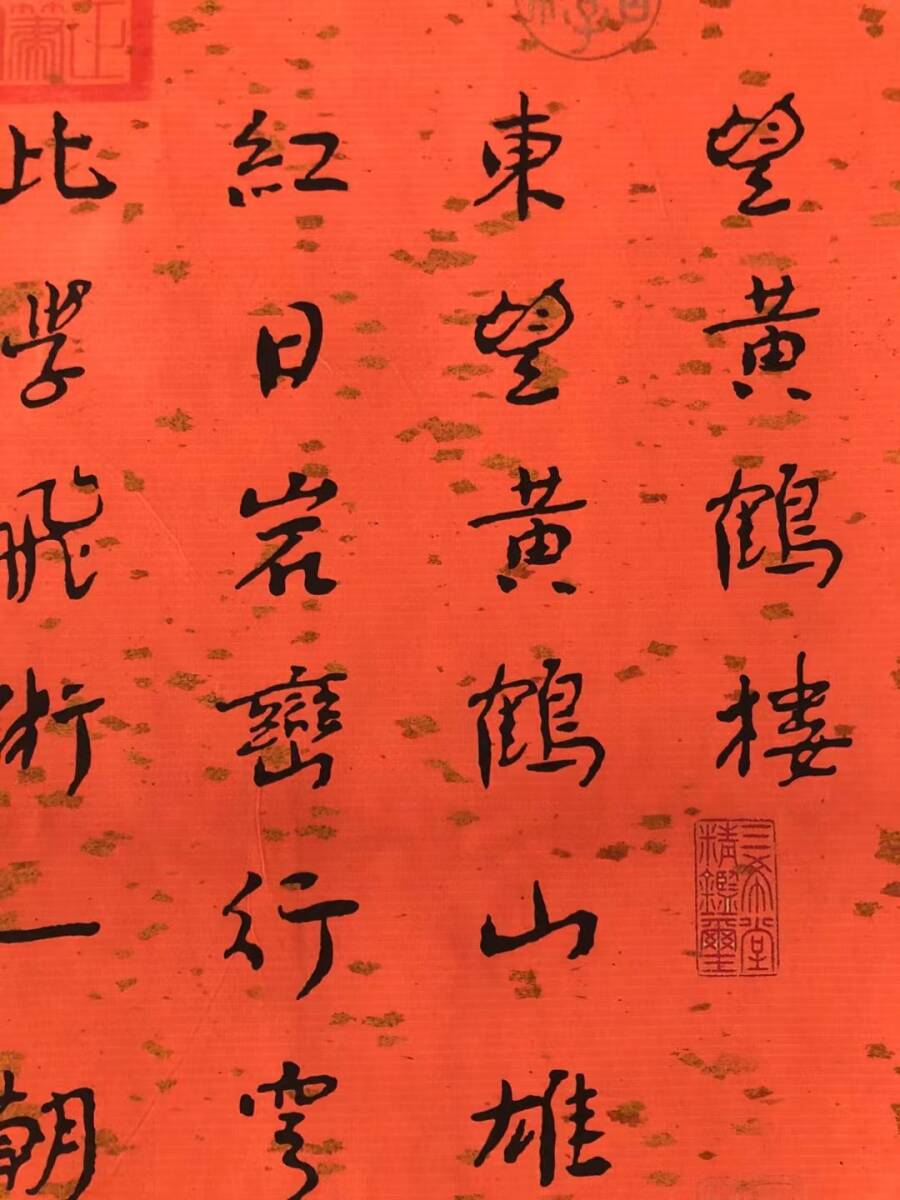 望黃鶴樓
三希堂
精鑑璽
東望黃鶴山雄
紅日岩巒行穹
此學飛術一朝